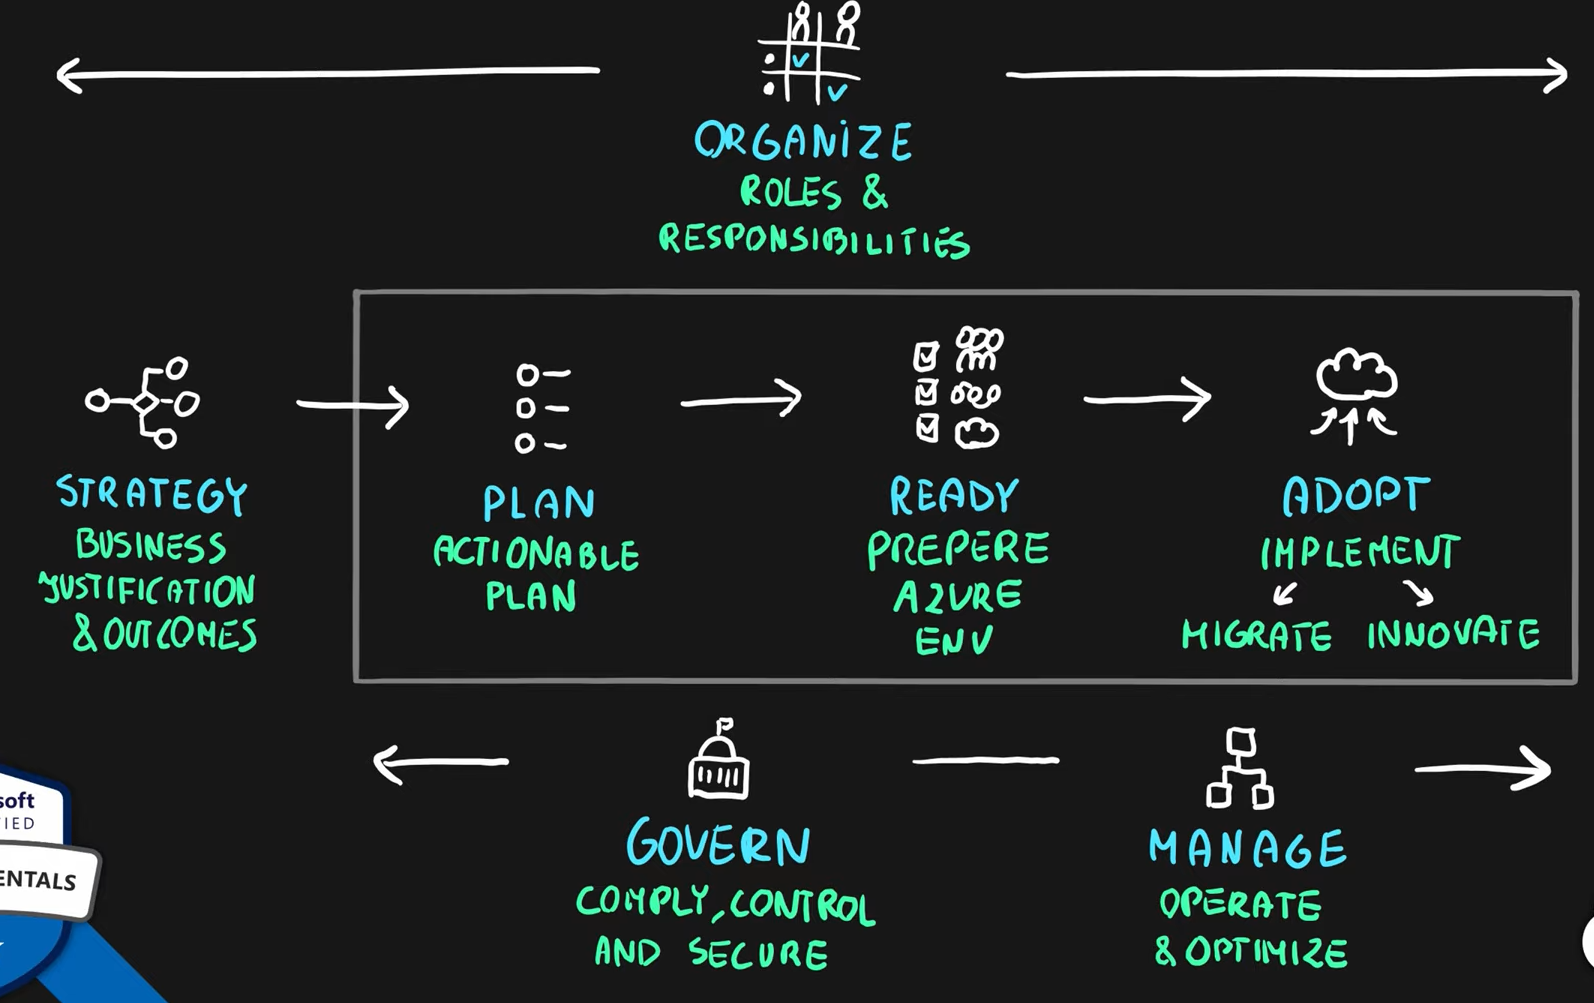 ORGANIZE
ROLES &
RESPONSIBILITIES
STRATEGY
BUSINESS
JUSTIFICATION
& OUTCOMES
PLAN
ACTIONABLE
PLAN
READY
PREPERE
AZURE
ENV
ADOPT
IMPLEMENT
MIGRATE INNOVATE
GOVERN
COMPLY, CONTROL
AND SECURE
MANAGE
OPERATE
& OPTIMIZE
soft
IED
ENTALS